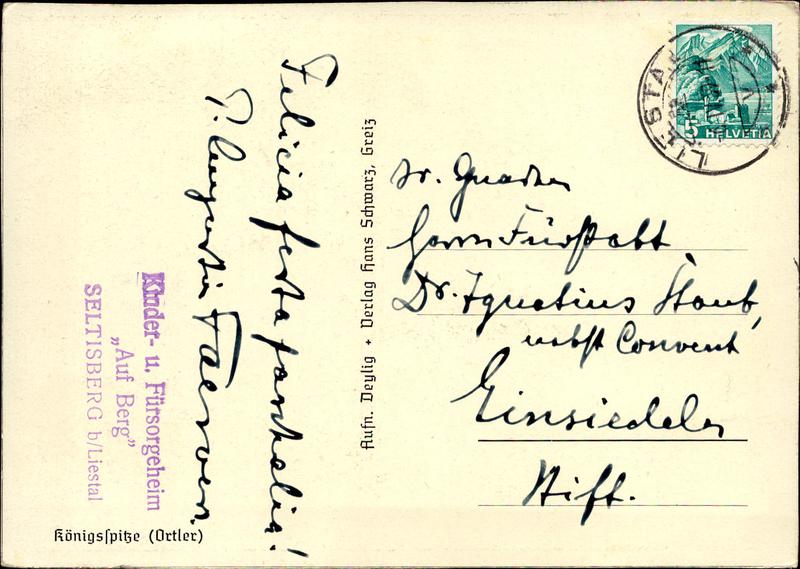 Felicia festa paschalia!
P. Augustin
Kinder- u. Fürsorgeheim
„Auf Berg"
SELTISBERG b/Liestal
Königsſpitze (Ortler)
Aufn. Deylig + Verlag Hans Schwarz, Greiz
LIESTAL
5 HELVETIA
Sr. Gnaden
Herrn Fürstabt
Dr. Ignatius Staub,
nebst Convent
Einsiedeln
Stift.